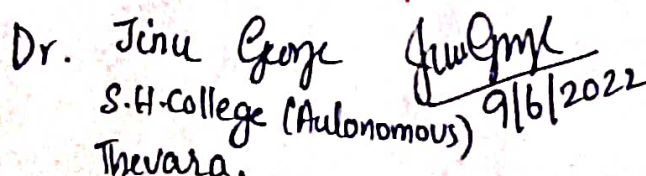 Dr. Jinu George
S.H.College (Autonomous) 9/6/2022
Thevara.